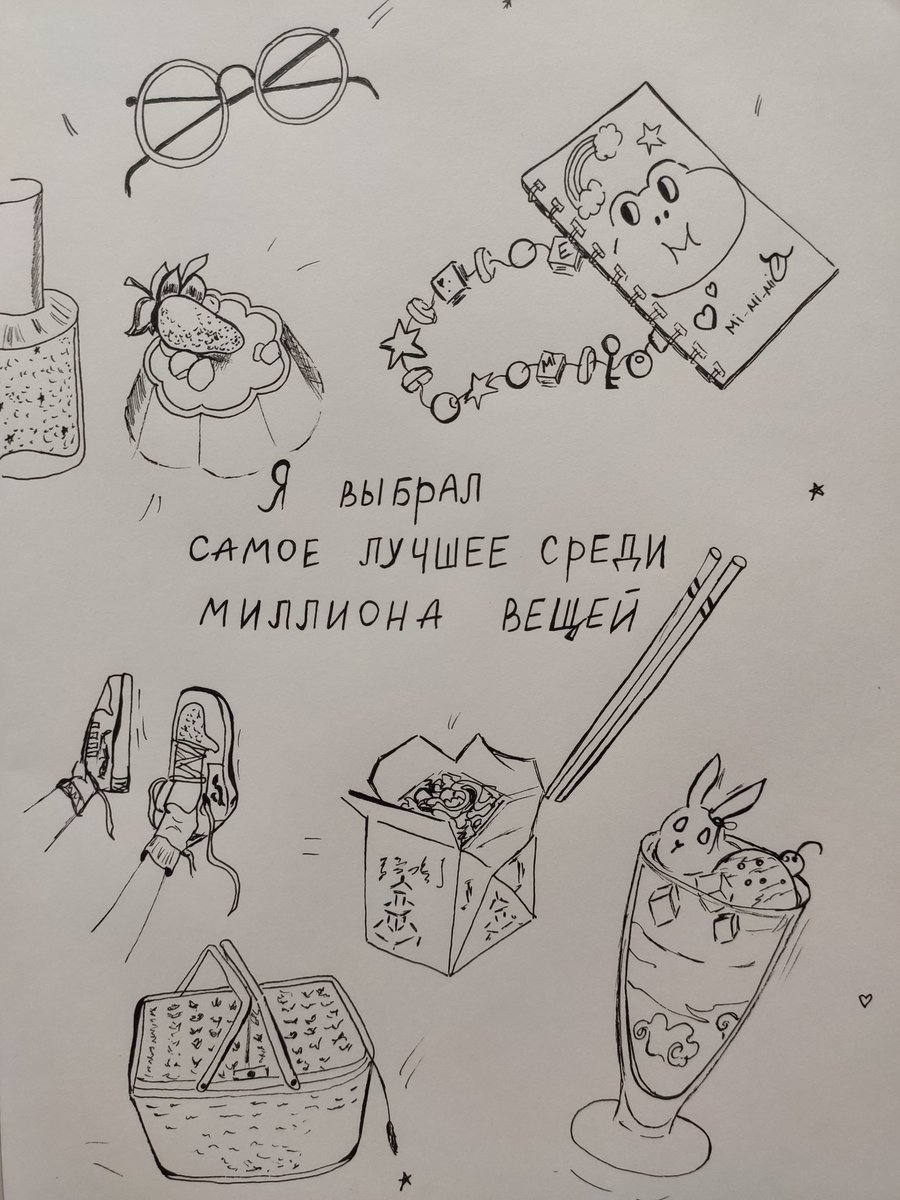 E
MI
Mi-Mi-Mi
Я ВЫБРАЛ
САМОЕ ЛУЧШЕЕ СРЕДИ
МИЛЛИОНА ВЕЩЕЙ